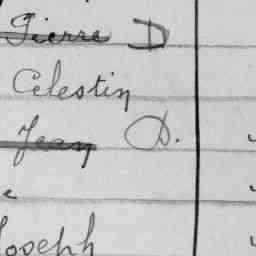 Pierre D
Celestin
Jean D.
e
Joseph